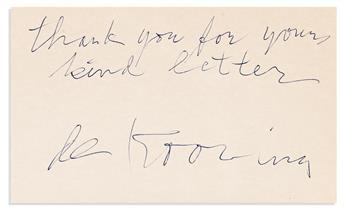 thank you for yours
kind letter
de Kooning